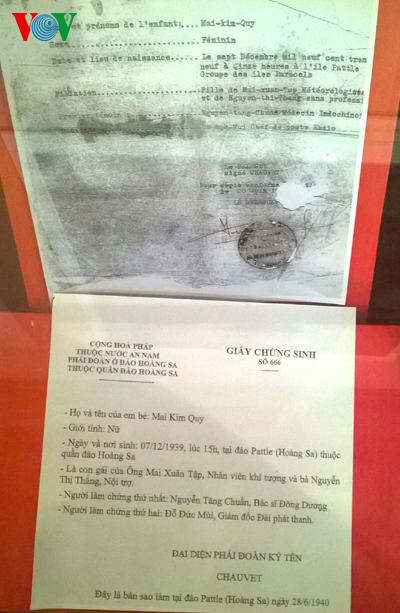 VOV
et prénoms de l'enfant: Mai-kim-Quy
Sexe Féminim
Date et lieu de naissance: Le sept Décembre mil neuf cent tren
neuf à Qinze heures à l'île Pattle
Groupe des îles
Filiation: Fille de Mai-xuan-Tap Météorologiste
et de Nguyen-thi-Thang sans profess
témoin Nguyen-tang-Chuan Médecin Indochinoi
Chef de poste Radio
signé CHAUVET
Pour copie conforme
CỘNG HOÀ PHÁP
THUỘC NƯỚC AN NAM
PHÁI ĐOÀN Ở ĐẢO HOÀNG SA
THUỘC QUẦN ĐẢO HOÀNG SA
GIẤY CHỨNG SINH
SỐ 666
- Họ và tên của em bé: Mai Kim Quy
- Giới tính: Nữ
- Ngày và nơi sinh: 07/12/1939, lúc 15h, tại đảo Pattle (Hoàng Sa) thuộc
quần đảo Hoàng Sa
- Là con gái của Ông Mai Xuân Tập, Nhân viên khí tượng và bà Nguyễn
Thị Thắng, Nội trợ.
- Người làm chứng thứ nhất: Nguyễn Tăng Chuẩn, Bác sĩ Đông Dương
- Người làm chứng thứ hai: Đỗ Đức Mùi, Giám đốc Đài phát thanh.
ĐẠI DIỆN PHÁI ĐOÀN KÝ TÊN
CHAUVET
Đây là bản sao làm tại đảo Pattle (Hoàng Sa) ngày 28/6/1940